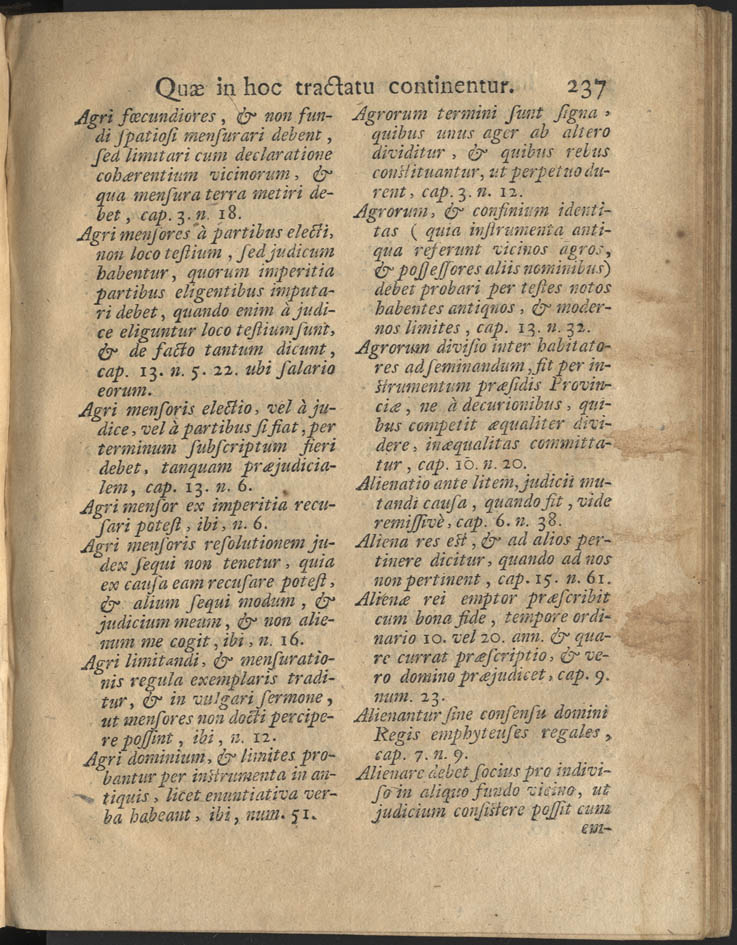 Quæ in hoc tractatu continentur. 237
Agri fœcundiores, & non fun-
di ſpatioſi menſurari debent,
ſed limitari cum declaratione
cohærentium vicinorum, &
qua menſura terra metiri de-
bet, cap. 3. n. 18.
Agri menſores à partibus electi,
non loco teſtium, ſed judicum
habentur, quorum imperitia
partibus eligentibus imputa-
ri debet, quando enim à judi-
ce eliguntur loco teſtium ſunt,
& de facto tantum dicunt,
cap. 13. n. 5. 22. ubi ſalario
eorum.
Agri menſoris electio, vel à ju-
dice, vel à partibus ſi fiat, per
terminum ſubſcriptum fieri
debet, tanquam præjudicia-
lem, cap. 13. n. 6.
Agri menſor ex imperitia recu-
ſari poteſt, ibi, n. 6.
Agri menſoris reſolutionem ju-
dex ſequi non tenetur, quia
ex cauſa eam recuſare poteſt,
& alium ſequi modum, &
judicium meum, & non alie-
num me cogit, ibi, n. 16.
Agri limitandi, & menſuratio-
nis regula exemplaris tradi-
tur, & in vulgari ſermone,
ut menſores non docti percipe-
re poſſint, ibi, n. 12.
Agri dominium, & limites pro-
bantur per inſtrumenta in an-
tiquis, licet enuntiativa ver-
ba habeant, ibi, num. 51.
Agrorum termini ſunt ſigna,
quibus unus ager ab altero
dividitur, & quibus rebus
conſtituantur, ut perpetuo du-
rent, cap. 3. n. 12.
Agrorum, & confinium identi-
tas ( quia inſtrumenta anti-
qua referunt vicinos agros,
& poſſeſſores aliis nominibus)
debet probari per teſtes notos
habentes antiquos, & moder-
nos limites, cap. 13. n. 32.
Agrorum diviſio inter habitato-
res ad ſeminandum, fit per in-
ſtrumentum præſidis Provin-
ciæ, ne à decurionibus, qui-
bus competit æqualiter divi-
dere, inæqualitas committa-
tur, cap. 10. n. 20.
Alienatio ante litem, judicii mu-
tandi cauſa, quando fit, vide
remiſſivè, cap. 6. n. 38.
Aliena res eſt, & ad alios per-
tinere dicitur, quando ad nos
non pertinent, cap. 15. n. 61.
Alienæ rei emptor præſcribit
cum bona fide, tempore ordi-
nario 10. vel 20. ann. & qua-
re currat præſcriptio, & ve-
ro domino præjudicet, cap. 9.
num. 23.
Alienantur ſine conſenſu domini
Regis emphyteuſes regales,
cap. 7. n. 9.
Alienare debet ſocius pro indivi-
ſo in aliquo fundo vicino, ut
judicium conſiſtere poſſit cum
em-